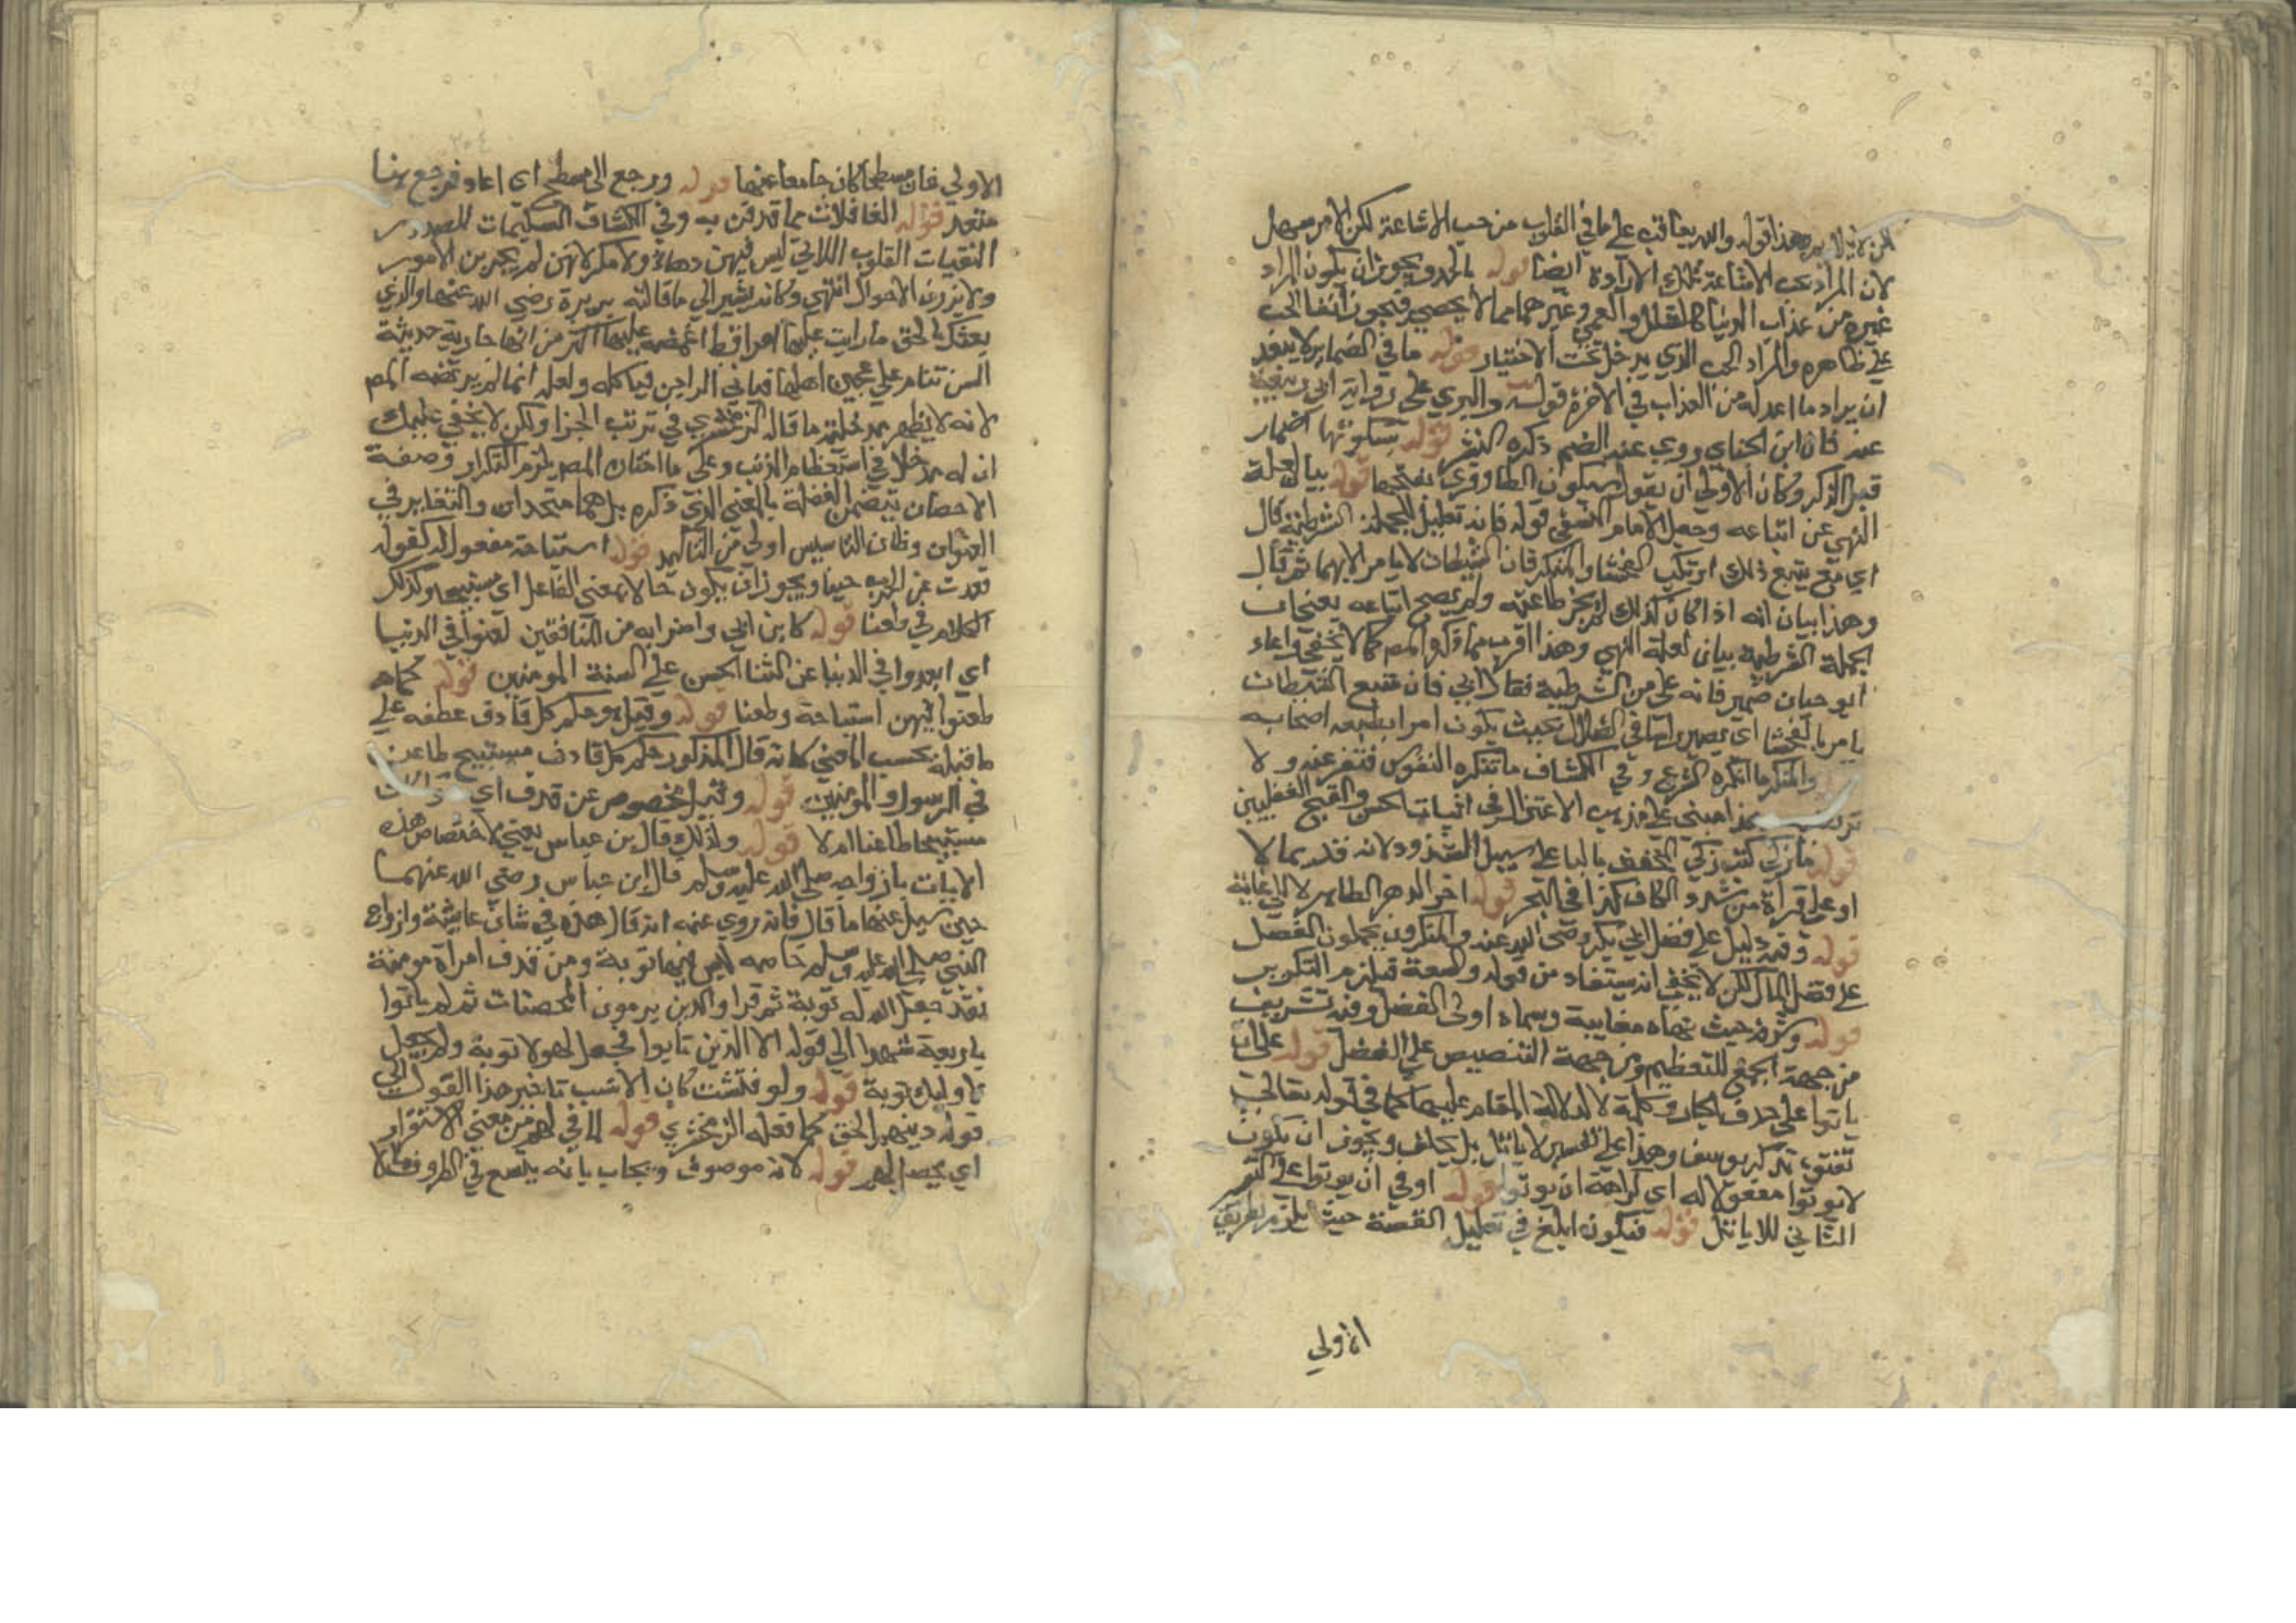 لكن لا يلايمه هذا قوله والله يعاقب على ما في القلوب من حب الاشاعة لكن الامر سهل
لان المراد بحب الاشاعة تلك الارادة ايضا قوله بالحد ويجوز ان يكون المراد
غيره من عذاب الدنيا كالقلل والعمي وغيرهما مما لا يحصي فيجوز
على ظاهره والمراد الحب الذي يدخل تحت الاختيار قوله ما في الضماير لا يبعد
ان يراد ما اعد له من العذاب في الاخرة قوله والبزي على رواية ابي ربيعة
عنه فان ابن الحباب روي عنه الضم ذكره النشر قوله بسكونها اضمار
قبل الذكر وكان الاولي ان يقول بسكون الطا وقرئ بفتحها قوله بيان لعلة
النهي عن اتباعه وجعل الامام النسفي قوله فانه تعليل للجملة الشرطية قال
اي من يتبع ذلك ارتكب الفحشا والمنكر فان الشيطان لا يامر الا بهما ثم قال
وهذا بيان انه اذا كان كذلك لم يجز طاعته ولم يصح اتباعه يعني ان
الجملة الشرطية بيان لعلة النهي وهذا اقرب مما ذكره المص كما لا يخفي واعاد
ابو حيان ضمير فانه على من الشرطية فقال اي فان متبع الشيطان
يامر بالفحشا اي يصير راسا في الضلال بحيث يكون امرا يطيعه اصحابه
والمنكر ما انكره الشرع وفي الكشاف ما تنكره النفوس فتنفر عنه ولا
هذا مبني على مذهب الاعتزال في اثبات الحسن والقبح العقليين
قوله ما زكي كتب زكي المخفف باليا على سبيل الشذوذ لانه قد يمال
او على قراءة من شدد الكاف كذا في البحر قوله اخر الدهر الظاهر لا الي غاية
قوله وفيه دليل على فضل ابي بكر رضي الله عنه والمنكرون يحملون الفضل
على فضل المال لكن لا يخفي انه يستفاد من قوله والسعة فيلزم التكرير
قوله وشرفه حيث نهاه مغايبة وسماه اولي الفضل وفيه تشريف
من جهة الجمع للتعظيم ومن جهة التنصيص على الفضل قوله على ان
ياتوا على حذف الجار وكلمة لا لدلالة المقام عليها كما في قوله تعالي
تفتؤ تذكر يوسف وهذا على تفسير لا ياتل بل يحلف ويجوز ان يكون
لا يوتوا مفعولا له اي كراهة ان يوتوا قوله او في ان يوتوا على
الثاني للا ياتل قوله فيكون ابلغ في تعليل القصة حيث يلزم بطريق
الاولي
الاولي فان مسطحا كان جامعا عنها قوله ورجع الي مسطح اي اعاد فرجع هنا
متعد قوله الغافلات مما قذفن به وفي الكشاف السليمات الصدور
النقيات القلوب اللاتي ليس فيهن دهاء ولا مكر لانهن لم يجربن الامور
ولا يزرن الاحوال انتهي وكانه يشير الي ما قالته بريرة رضي الله عنها والذي
بعثك بالحق ما رايت عليها امرا قط اغمضه عليها اكثر من انها جارية حديثة
السن تنام على عجين اهلها فياتي الداجن فياكله ولعله انما لم يرتضه المص
لانه لا يظهر مدخلية ما قاله الزمخشري في ترتب الجزا ولكن لا يخفي عليك
ان له مدخلا في استعظام الذنب وعلى ما اختاره المص يلزم التكرار وصفة
الاحصان يتضمن الغفلة بالمعني الذي ذكره بل هما متحدان والتغاير في
العنوان وظان التاسيس اولي من التاكيد قوله استباحة مفعول له كقوله
قعدت عن الحرب جبنا ويجوز ان يكون حالا بمعني الفاعل اي مستبيحا وكذلك
الكلام في طعنا قوله كابن ابي واضرابه من المنافقين لعنوا في الدنيا
اي ابعدوا في الدنيا عن الثنا الحسن على السنة المومنين قوله كما
طعنوا فيهن استباحة وطعنا قوله وقيل هو حكم كل قاذف عطفه على
ما قبله بحسب المعني كانه قال المذكور حكم كل قاذف مستبيح طاعن
في الرسول والمومنين قوله وقيل مخصوص عن قذف اي
مستبيحا طاعنا ام لا قوله ولذلك قال ابن عباس يعني لاختصاص هذه
الايات بازواجه صلى الله عليه وسلم قال ابن عباس رضي الله عنهما
حين سيل عنها ما قال فانه روي عنه انه قال هذه في شان عايشة وازواج
النبي صلى الله عليه وسلم خاصه ليس فيها توبة ومن قذف امراة مومنة
فقد جعل الله له توبة ثم قرا والذين يرمون المحصنات ثم لم ياتوا
باربعة شهدا الي قوله الا الذين تابوا فجعل لهولا توبة ولم يجعل
لاوليك توبة قوله ولو فتشت كان الانسب تاخير هذا القول الي
قوله دينهم الحق كما فعله الزمخشري قوله لما في لهم من معني الاستقرار
اي يحصل لهم قوله لانه موصوف ويجاب بانه يتسع في الظروف ما لا